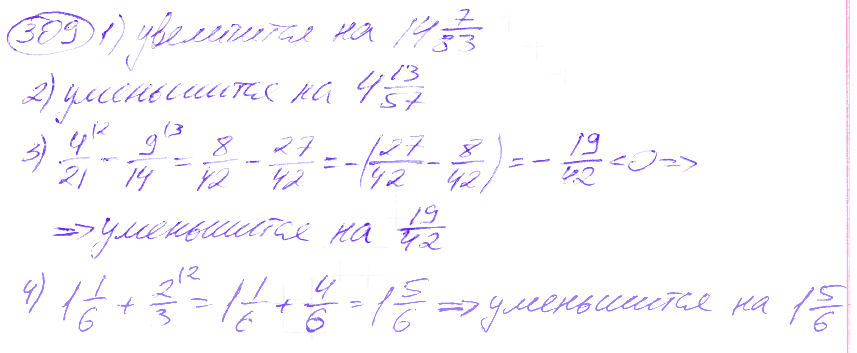 309 1) увеличится на 14 7/33
2) уменьшится на 4 13/57
3) 4/21 \2 - 9/14 \3 = 8/42 - 27/42 = -(27/42 - 8/42) = - 19/42 < 0 =>
=> уменьшится на 19/42
4) 1 1/6 + 2/3 \2 = 1 1/6 + 4/6 = 1 5/6 => уменьшится на 1 5/6